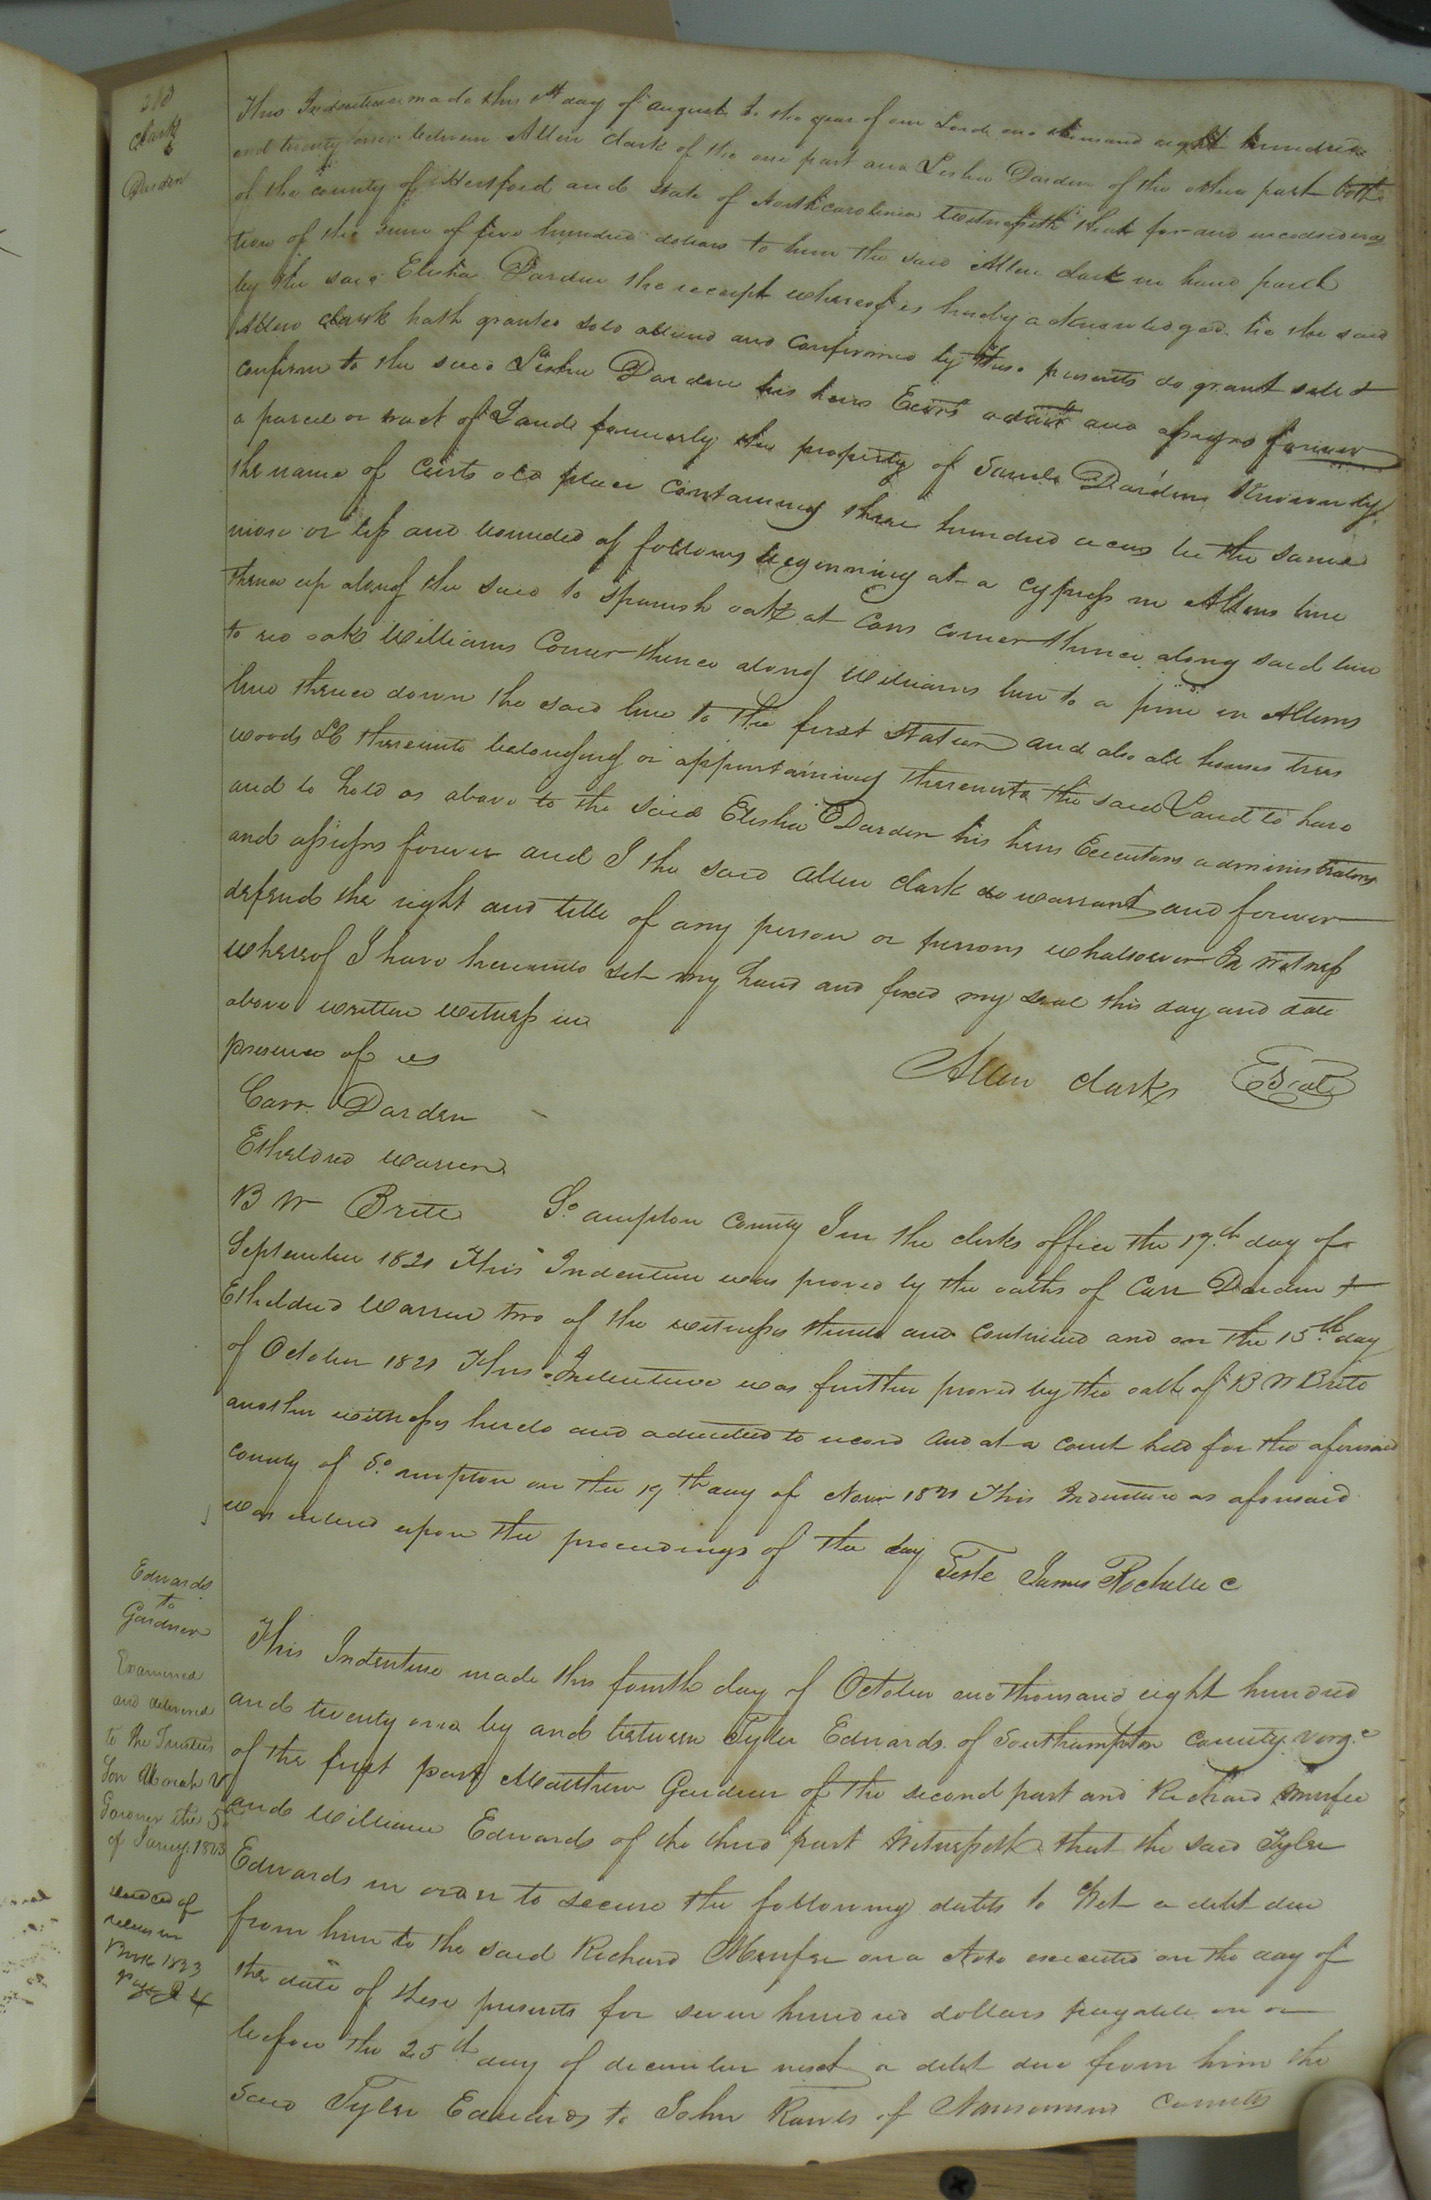 Clark
Darden
This Indenture made this 1st day of august In the year of our Lord one thousand eight hundred
and twenty one between Allen Clark of the one part and Elisha Darden of the other part both
of the county of Hertford and state of North carolinia Witnesseth that for and in considera
tion of the sum of five hundred dollars to him the said Allen Clark in hand paid
by the said Elisha Darden the receipt whereof is hereby acknowledged he the said
Allen Clark hath granted sold aliend and Confirmed by these presents do grant sell &
confirm to the said Elisha Darden his heirs Exors admr and assigns forever
a parcel or tract of Land formerly the property of Darden Known by
the name of old place containing three hundred acres be the same
more or less and bounded as follows beginning at a cypress in Allens line
thence up along the said to spanish oak at Cars corner thence along said line
to red oak Williams Corner thence along Williams line to a pine in Allens
line thence down the said line to the first station and also all houses trees
woods &c thereunto belonging or appertaining thereunto the said Land to have
and to hold as above to the said Elisha Darden his heirs Executors administrators
and assigns forever and I the said Allen Clark do warrant and forever
defend the right and title of any person or persons whatsoever In witness
whereof I have hereunto set my hand and fixed my seal this day and date
above written Witness in
presence of us
Allen Clark Seal
Carr Darden
Etheldred Warren
B W Brite So ampton County In the clerks office the 17th day of
September 1821 This Indenture was proved by the oaths of Carr Darden &
Etheldred Warren two of the witnesses thereto and Continued and on the 15th day
of October 1821 This Indenture was further proved by the oath of B W Brite
another witness hereto and admitted to record And at a Court held for the aforesaid
county of So ampton on the 19th day of Novr 1821 This Indenture as aforesaid
was entered upon the proceedings of the day
Teste James Rochelle C
Edwards
to
Gardner
Examined
and delivered
to the Trustees
Son
Gardner the 5
of Jany 1823
release in
Book 1823
page 24
This Indenture made this fourth day of October one thousand eight hundred
and twenty one by and between Tyler Edwards of Southampton County Virga
of the first part Matthew Gardner of the second part and Richard Murfee
and William Edwards of the third part Witnesseth that the said Tyler
Edwards in order to secure the following debts to Wit a debt due
from him to the said Richard Murfee on a Note executed on the day of
the date of these presents for seven hundred dollars payable on or
before the 25th day of december next a debt due from him the
said Tyler Edwards to John Rawls of Nansemond County